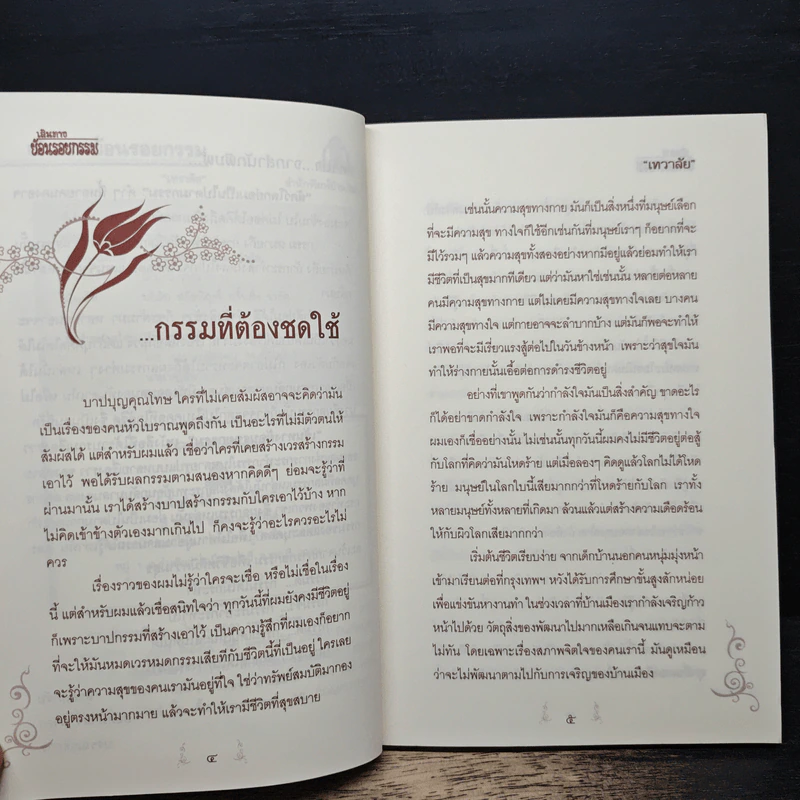 เดินทาง
ย้อนรอยกรรม
...กรรมที่ต้องชดใช้
บาปบุญคุณโทษ ใครที่ไม่เคยสัมผัสอาจจะคิดว่ามัน
เป็นเรื่องของคนหัวโบราณพูดถึงกัน เป็นอะไรที่ไม่มีตัวตนให้
สัมผัสได้ แต่สำหรับผมแล้ว เชื่อว่าใครที่เคยสร้างเวรสร้างกรรม
เอาไว้ พอได้รับผลกรรมตามสนองหากคิดดีๆ ย่อมจะรู้ว่าที่
ผ่านมานั้น เราได้สร้างบาปสร้างกรรมกับใครเอาไว้บ้าง หาก
ไม่คิดเข้าข้างตัวเองมากเกินไป ก็คงจะรู้ว่าอะไรควรอะไรไม่
ควร
เรื่องราวของผมไม่รู้ว่าใครจะเชื่อ หรือไม่เชื่อในเรื่อง
นี้ แต่สำหรับผมแล้วเชื่อสนิทใจว่า ทุกวันนี้ที่ผมยังคงมีชีวิตอยู่
ก็เพราะบาปกรรมที่สร้างเอาไว้ เป็นความรู้สึกที่ผมเองก็อยาก
ที่จะให้มันหมดเวรหมดกรรมเสียทีกับชีวิตนี้ที่เป็นอยู่ ใครเลย
จะรู้ว่าความสุขของคนเรามันอยู่ที่ใจ ใช่ว่าทรัพย์สมบัติมากอง
อยู่ตรงหน้ามากมาย แล้วจะทำให้เรามีชีวิตที่สุขสบาย
๔
"เทวาลัย"
เช่นนั้นความสุขทางกาย มันก็เป็นสิ่งหนึ่งที่มนุษย์เลือก
ที่จะมีความสุข ทางใจก็ใช้อีกเช่นกันที่มนุษย์เราๆ ก็อยากที่จะ
มีไว้รวมๆ แล้วความสุขทั้งสองอย่างหากมีอยู่แล้วย่อมทำให้เรา
มีชีวิตที่เป็นสุขมากทีเดียว แต่ว่ามันหาใช่เช่นนั้น หลายต่อหลาย
คนมีความสุขทางกาย แต่ไม่เคยมีความสุขทางใจเลย บางคน
มีความสุขทางใจ แต่กายอาจจะลำบากบ้าง แต่มันก็พอจะทำให้
เราพอที่จะมีเรี่ยวแรงสู้ต่อไปในวันข้างหน้า เพราะว่าสุขใจมัน
ทำให้ร่างกายนั้นเอื้อต่อการดำรงชีวิตอยู่
อย่างที่เขาพูดกันว่ากำลังใจมันเป็นสิ่งสำคัญ ขาดอะไร
ก็ได้อย่าขาดกำลังใจ เพราะกำลังใจมันก็คือความสุขทางใจ
ผมเองก็เชื่ออย่างนั้น ไม่เช่นนั้นทุกวันนี้ผมคงไม่มีชีวิตอยู่ต่อสู้
กับโลกที่คิดว่ามันโหดร้าย แต่เมื่อลองๆ คิดดูแล้วโลกไม่ได้โหด
ร้าย มนุษย์ในโลกใบนี้เสียมากกว่าที่โหดร้ายกับโลก เราทั้ง
หลายมนุษย์ทั้งหลายที่เกิดมา ล้วนแล้วแต่สร้างความเดือดร้อน
ให้กับผิวโลกเสียมากกว่า
เริ่มต้นชีวิตเรียบง่าย จากเด็กบ้านนอกคนหนุ่มมุ่งหน้า
เข้ามาเรียนต่อที่กรุงเทพฯ หวังได้รับการศึกษาขั้นสูงสักหน่อย
เพื่อแข่งขันหางานทำ ในช่วงเวลาที่บ้านเมืองเรากำลังเจริญก้าว
หน้าไปด้วย วัตถุสิ่งของพัฒนาไปมากเหลือเกินจนแทบจะตาม
ไม่ทัน โดยเฉพาะเรื่องสภาพจิตใจของคนเรานี้ มันดูเหมือน
ว่าจะไม่พัฒนาตามไปกับการเจริญของบ้านเมือง
๕